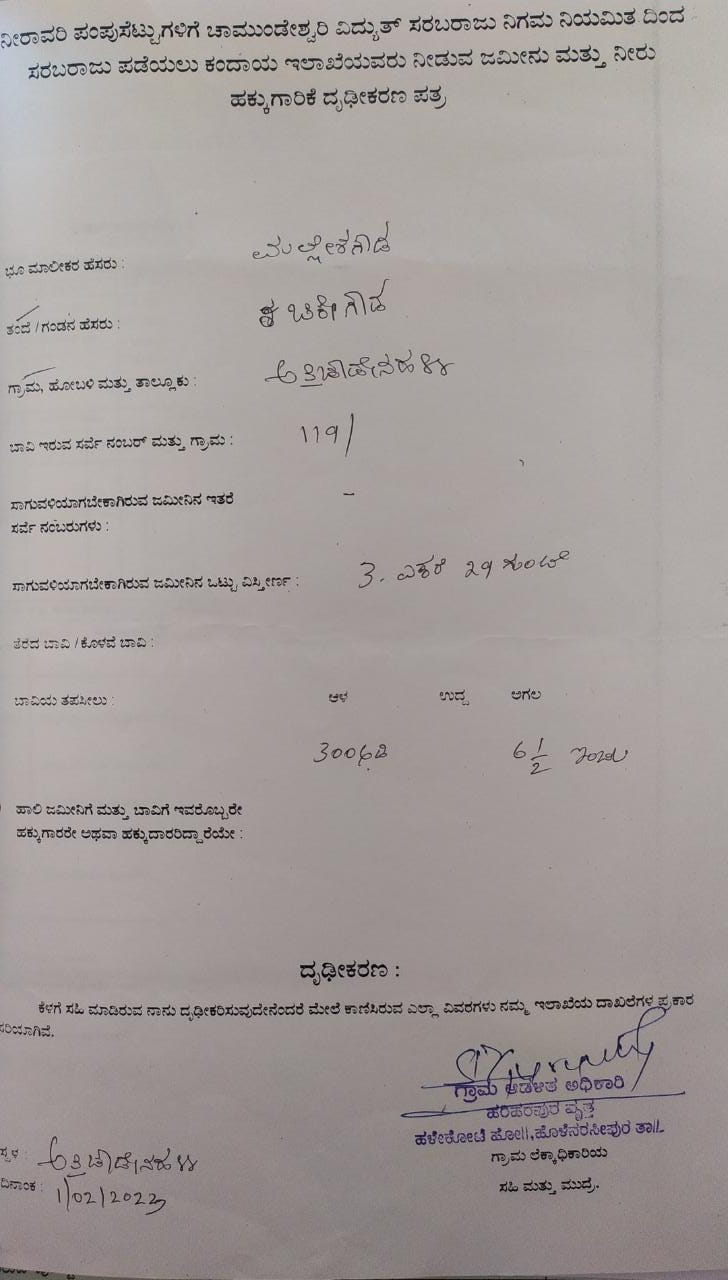 ನೀರಾವರಿ ಪಂಪುಸೆಟ್ಟುಗಳಿಗೆ ಚಾಮುಂಡೇಶ್ವರಿ ವಿದ್ಯುತ್ ಸರಬರಾಜು ನಿಗಮ ನಿಯಮಿತ ದಿಂದ
ಸರಬರಾಜು ಪಡೆಯಲು ಕಂದಾಯ ಇಲಾಖೆಯವರು ನೀಡುವ ಜಮೀನು ಮತ್ತು ನೀರು
ಹಕ್ಕುಗಾರಿಕೆ ದೃಢೀಕರಣ ಪತ್ರ
ಭೂ ಮಾಲೀಕರ ಹೆಸರು : ಮಲ್ಲೇಶಗೌಡ
ತಂದೆ / ಗಂಡನ ಹೆಸರು :
ಗ್ರಾಮ, ಹೋಬಳಿ ಮತ್ತು ತಾಲ್ಲೂಕು : ಅತ್ತಿಚೌಡೇನಹಳ್ಳಿ
ಬಾವಿ ಇರುವ ಸರ್ವೆ ನಂಬರ್ ಮತ್ತು ಗ್ರಾಮ : 119/
ಸಾಗುವಳಿಯಾಗಬೇಕಾಗಿರುವ ಜಮೀನಿನ ಇತರೆ -
ಸರ್ವೆ ನಂಬರುಗಳು :
ಸಾಗುವಳಿಯಾಗಬೇಕಾಗಿರುವ ಜಮೀನಿನ ಒಟ್ಟು ವಿಸ್ತೀರ್ಣ : 3. ಎಕರೆ 29 ಗುಂಟೆ
ತೆರೆದ ಬಾವಿ / ಕೊಳವೆ ಬಾವಿ :
ಬಾವಿಯ ತಪಸೀಲು : ಆಳ ಉದ್ದ ಅಗಲ
300 ಅಡಿ 6 1/2 ಇಂಚು
ಹಾಲಿ ಜಮೀನಿಗೆ ಮತ್ತು ಬಾವಿಗೆ ಇವರೊಬ್ಬರೇ
ಹಕ್ಕುಗಾರರೇ ಅಥವಾ ಹಕ್ಕುದಾರರಿದ್ದಾರೆಯೇ :
ದೃಢೀಕರಣ :
ಕೆಳಗೆ ಸಹಿ ಮಾಡಿರುವ ನಾನು ದೃಢೀಕರಿಸುವುದೇನೆಂದರೆ ಮೇಲೆ ಕಾಣಿಸಿರುವ ಎಲ್ಲಾ ವಿವರಗಳು ನಮ್ಮ ಇಲಾಖೆಯ ದಾಖಲೆಗಳ ಪ್ರಕಾರ
ಸರಿಯಾಗಿವೆ.
ಗ್ರಾಮ ಆಡಳಿತ ಅಧಿಕಾರಿ
ಹರಿಹರಪುರ ವೃತ್ತ
ಹಳೇಕೋಟೆ ಹೋ||, ಹೊಳೆನರಸೀಪುರ ತಾ||.
ಗ್ರಾಮ ಲೆಕ್ಕಾಧಿಕಾರಿಯ
ಸಹಿ ಮತ್ತು ಮುದ್ರೆ.
ಸ್ಥಳ : ಅತ್ತಿಚೌಡೇನಹಳ್ಳಿ
ದಿನಾಂಕ : 1/02/2023